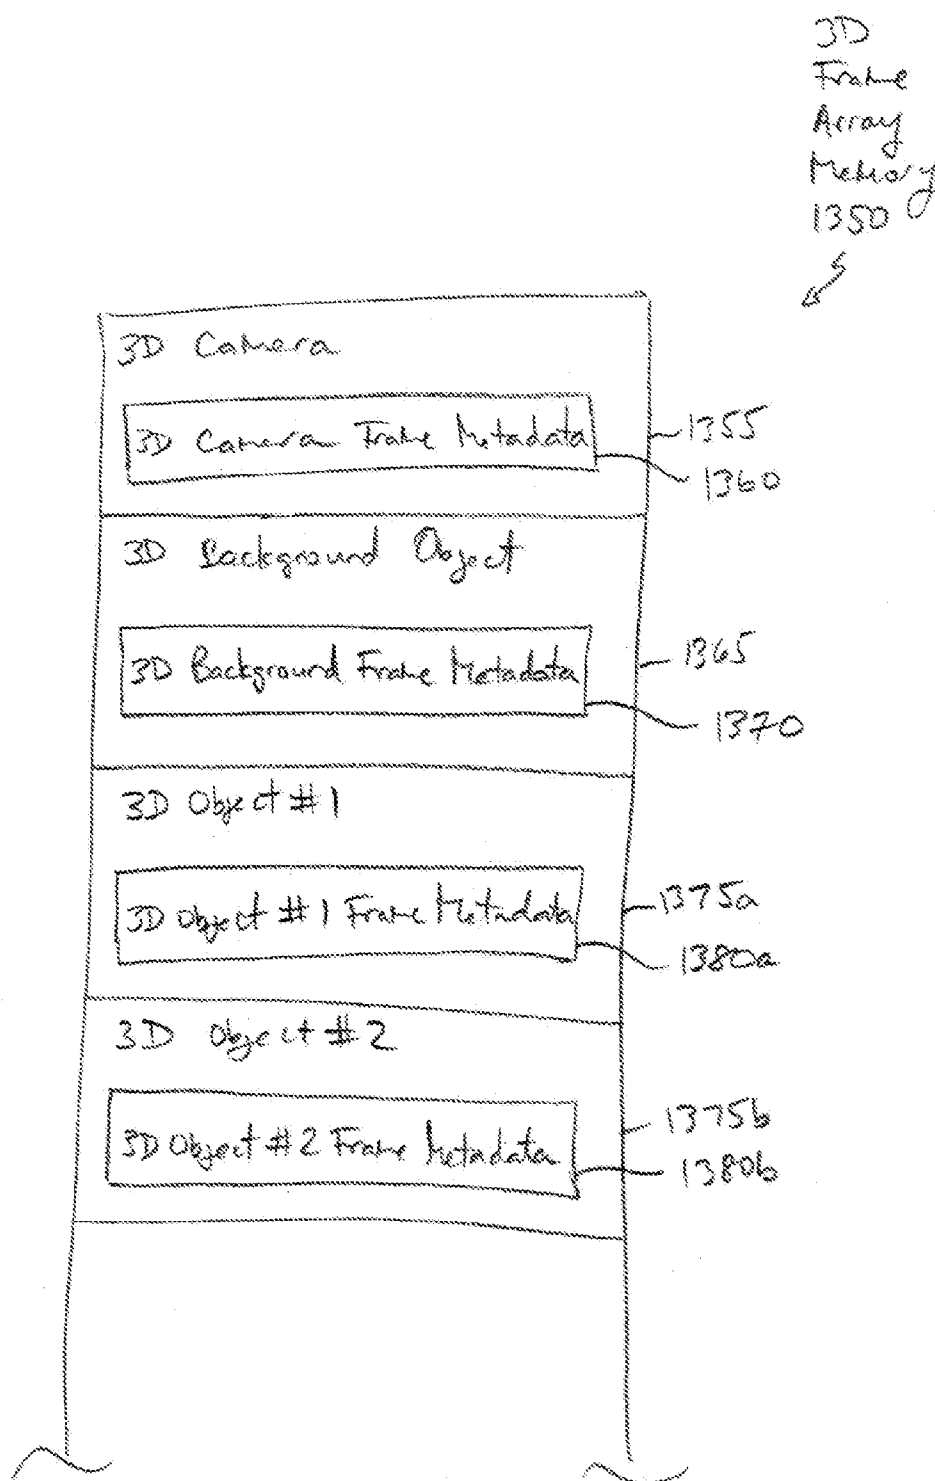 3D
Frame
Array
Memory
1350
3D Camera
3D Camera Frame Metadata
1355
1360
3D Background Object
3D Background Frame Metadata
1365
1370
3D Object #1
3D Object #1 Frame Metadata
1375a
1380a
3D Object #2
3D Object #2 Frame Metadata
1375b
1380b